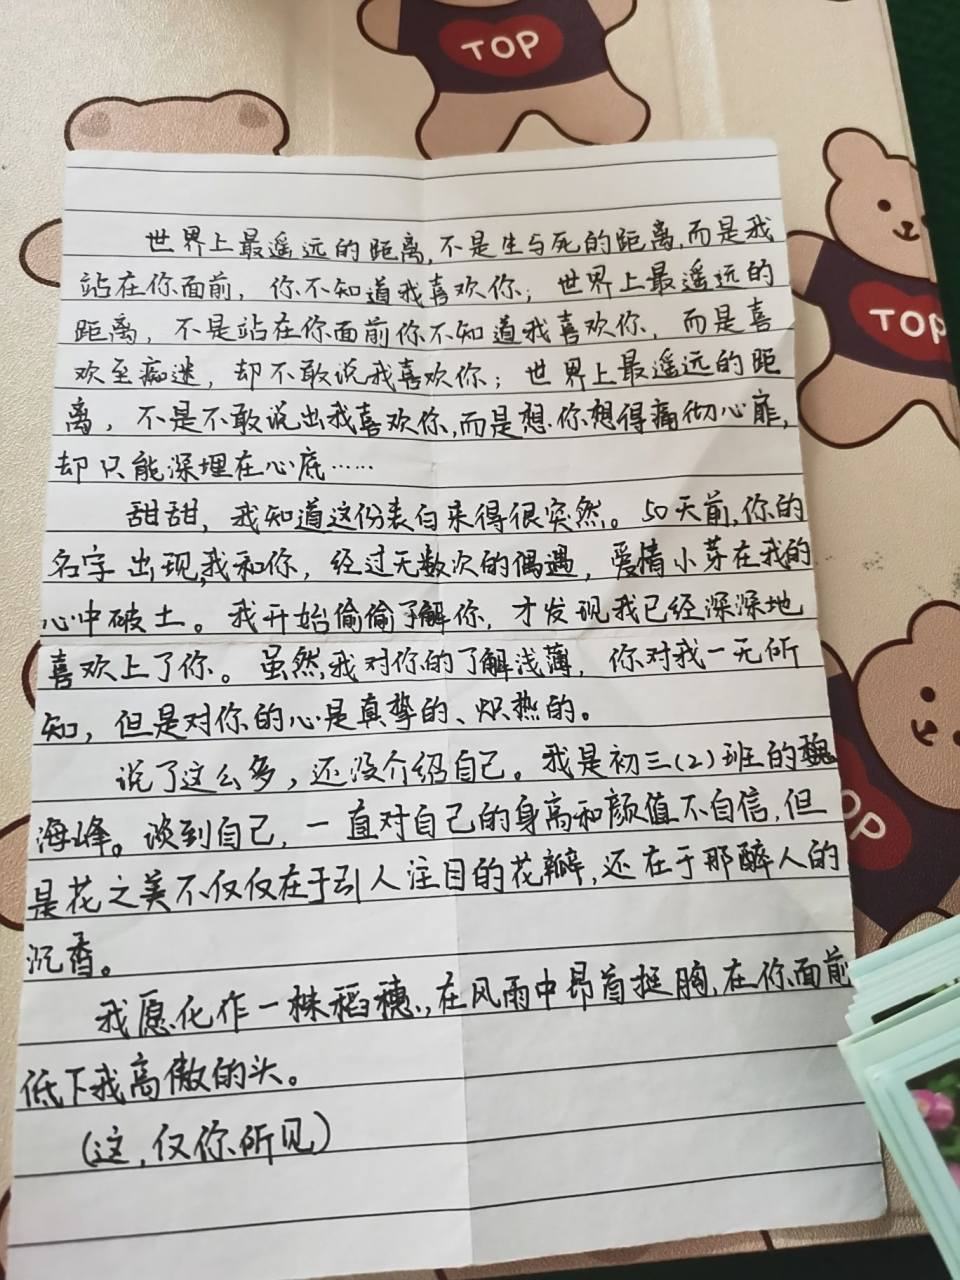 TOP
TOP
OP
世界上最遥远的距离,不是生与死的距离,而是我
站在你面前,你不知道我喜欢你;世界上最遥远的
距离,不是站在你面前你不知道我喜欢你,而是喜
欢至痴迷,却不敢说我喜欢你;世界上最遥远的距
离,不是不敢说出我喜欢你,而是想你想得痛彻心扉,
却只能深埋在心底……
甜甜,我知道这份表白来得很突然。50天前,你的
名字出现,我和你,经过无数次的偶遇,爱情小芽在我的
心中破土。我开始偷偷了解你,才发现我已经深深地
喜欢上了你。虽然,我对你的了解浅薄,你对我一无所
知,但是对你的心是真挚的、炽热的。
说了这么多,还没介绍自己。我是初三(2)班的魏
海峰。谈到自己,一直对自己的身高和颜值不自信,但
是花之美不仅仅在于引人注目的花瓣,还在于那醉人的
沉香。
我愿化作一株稻穗,在风雨中昂首挺胸,在你面前
低下我高傲的头。
(这,仅你所见)